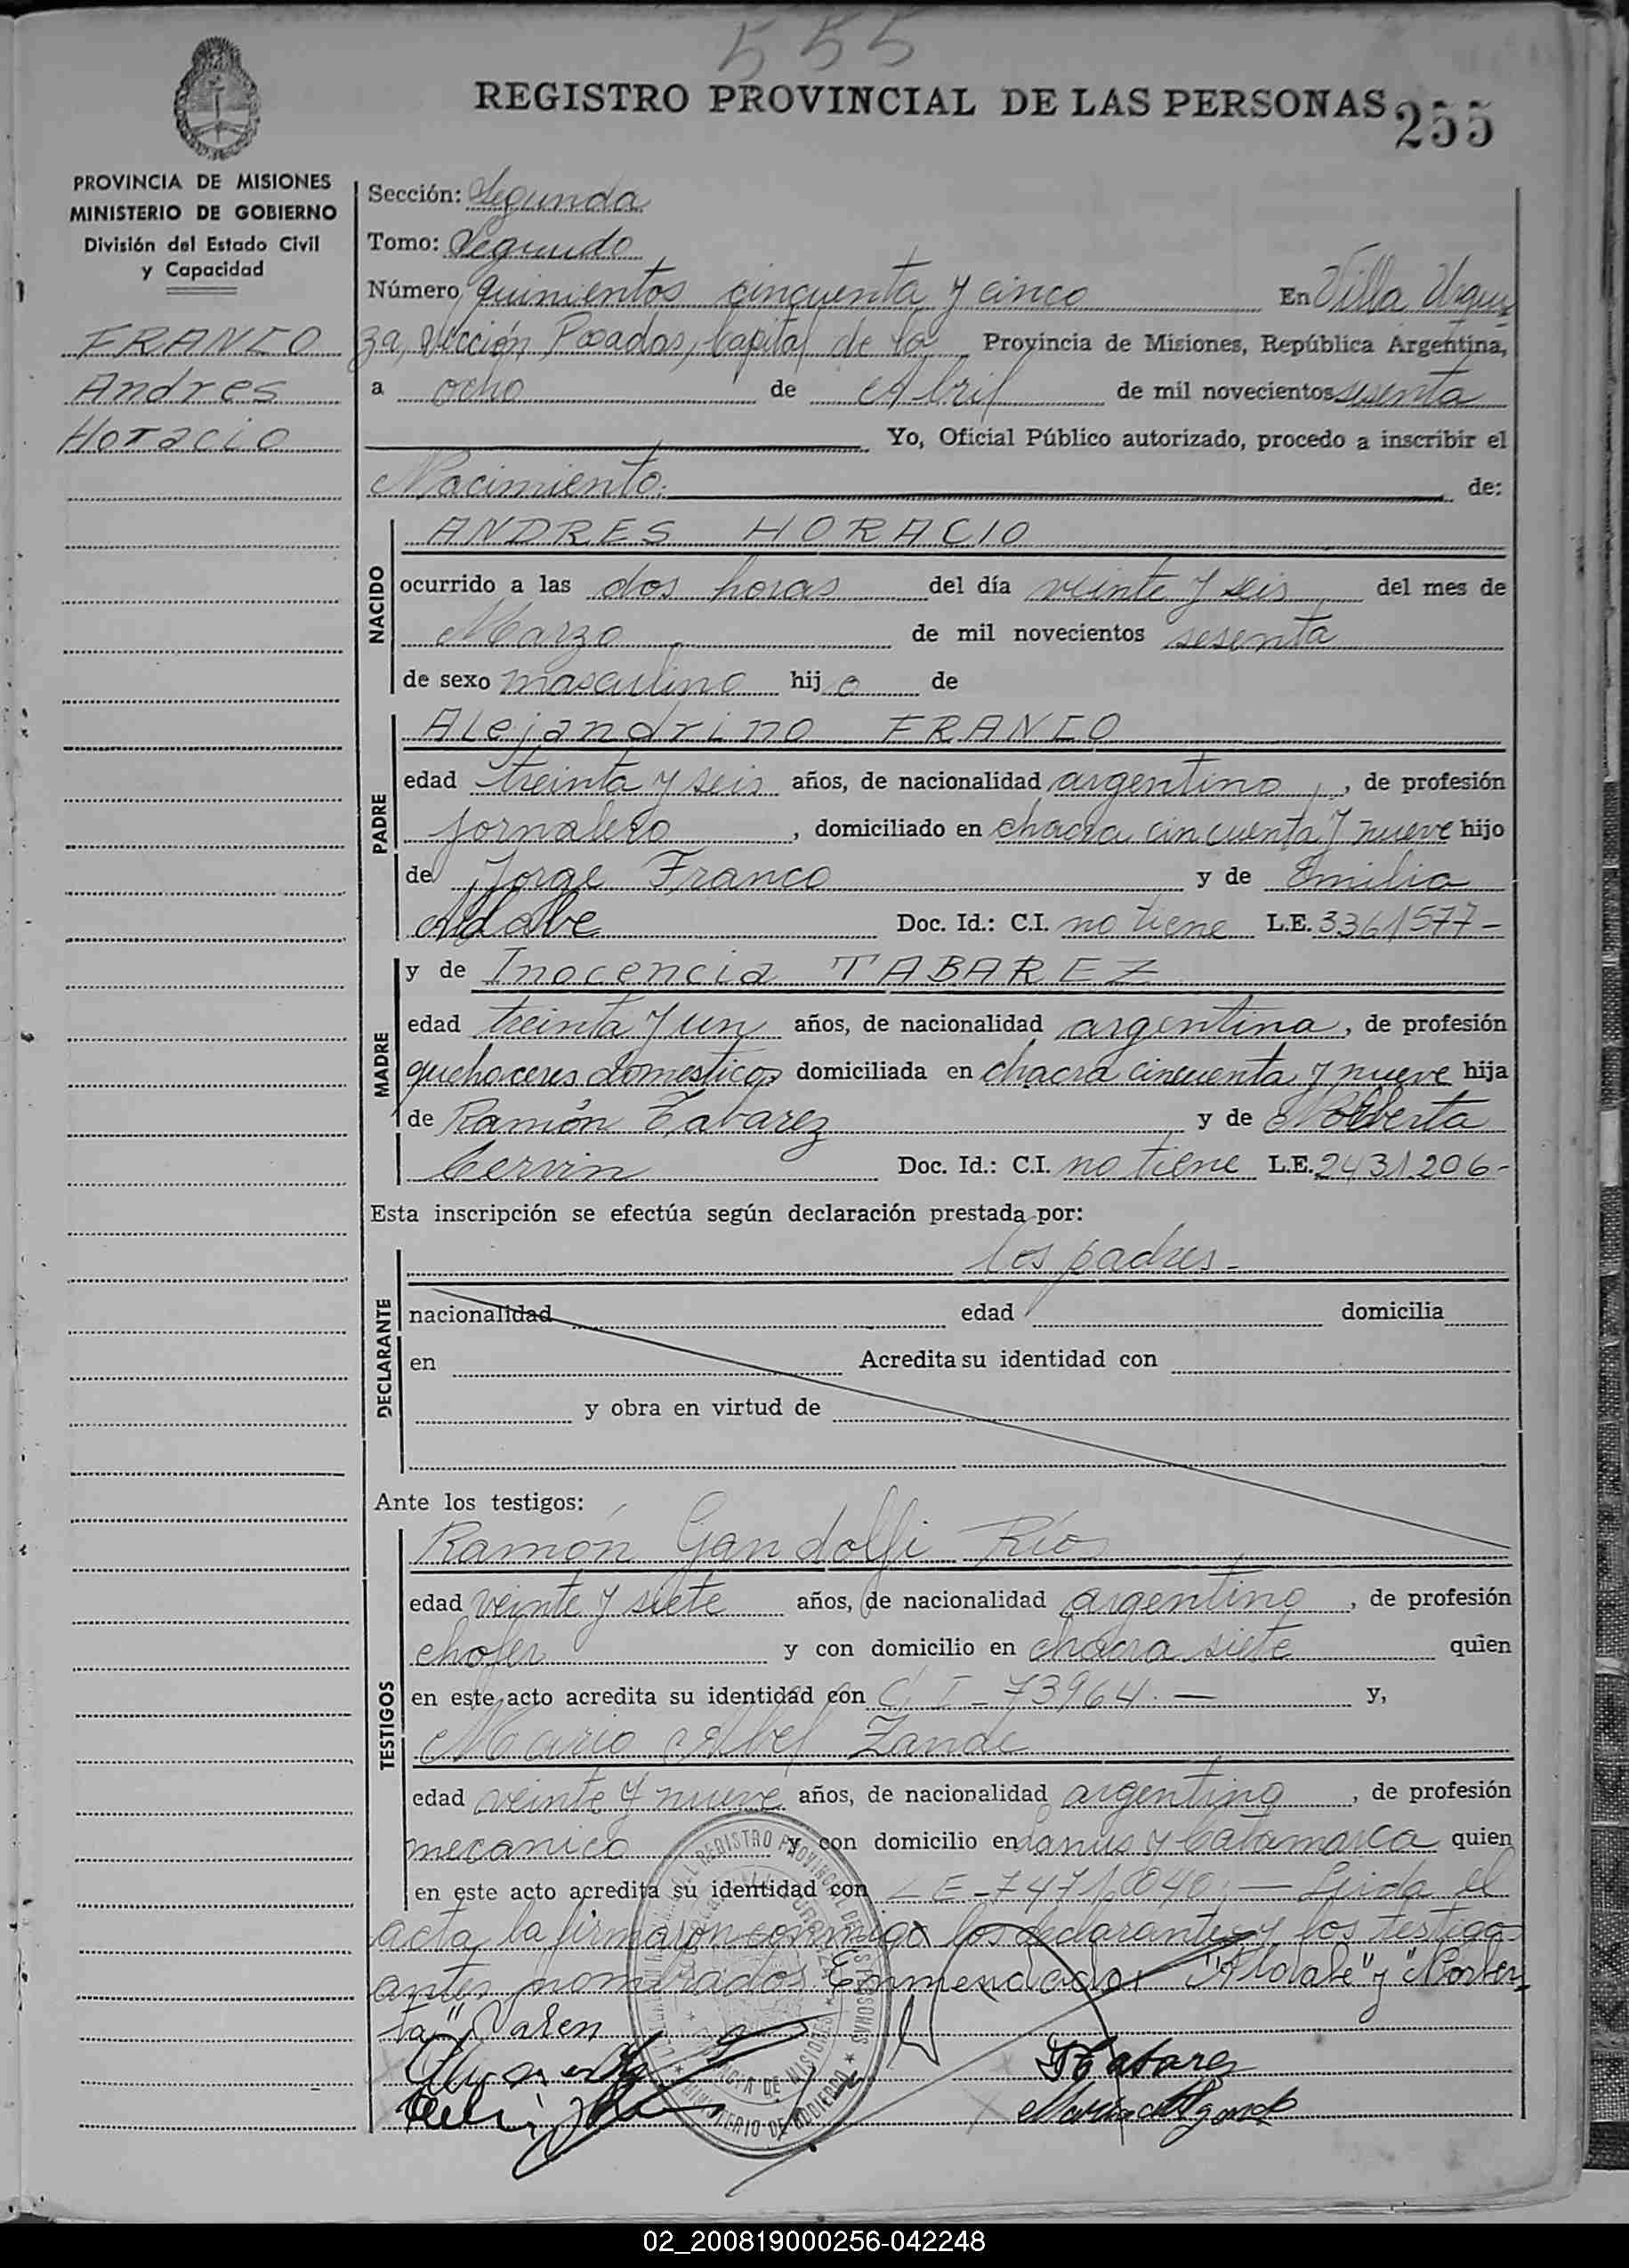 555
REGISTRO PROVINCIAL DE LAS PERSONAS 255
PROVINCIA DE MISIONES
MINISTERIO DE GOBIERNO
División del Estado Civil
y Capacidad
FRANCO
Andres
Horacio
Sección: Segunda
Tomo: Segundo
Número quinientos cincuenta y cinco En Villa Urqui
za, Sección Posadas, Capital de la Provincia de Misiones, República Argentina,
a ocho de Abril de mil novecientos sesenta
Yo, Oficial Público autorizado, procedo a inscribir el
Nacimiento. de:
NACIDO
ANDRES HORACIO
ocurrido a las dos horas del día veinte y seis del mes de
Marzo de mil novecientos sesenta
de sexo masculino hijo de
PADRE
Alejandrino FRANCO
edad treinta y seis años, de nacionalidad argentino, de profesión
jornalero, domiciliado en chacra cincuenta y nueve hijo
de Jorge Franco y de Emilia
Aldabe Doc. Id.: C.I. no tiene L.E. 3361577-
MADRE
y de Inocencia TABAREZ
edad treinta y un años, de nacionalidad argentina, de profesión
quehaceres domesticos domiciliada en chacra cincuenta y nueve hija
de Ramón Tabarez y de Norberta
Cervin Doc. Id.: C.I. no tiene L.E. 2431206-
Esta inscripción se efectúa según declaración prestada por:
DECLARANTE
los padres-
nacionalidad edad domicilia
en Acredita su identidad con
y obra en virtud de
Ante los testigos:
TESTIGOS
Ramón Gandolfi Ríos
edad veinte y siete años, de nacionalidad argentino, de profesión
chofer y con domicilio en chacra siete quien
en este acto acredita su identidad con C. I- 73964.— y,
Mario Abel Zande
edad veinte y nueve años, de nacionalidad argentino, de profesión
mecanico y con domicilio en Lanus y Catamarca quien
en este acto acredita su identidad con L E-7471.040;— Leida el
acta la firmaron conmigo los declarantes y los testigos
antes nombrados. Enmendado: "Aldabe" y "Norber
ta" Valen
Tabarez
REGISTRO PROVINCIAL DE LAS PERSONAS
MINISTERIO DE GOBIERNO
02_200819000256-042248